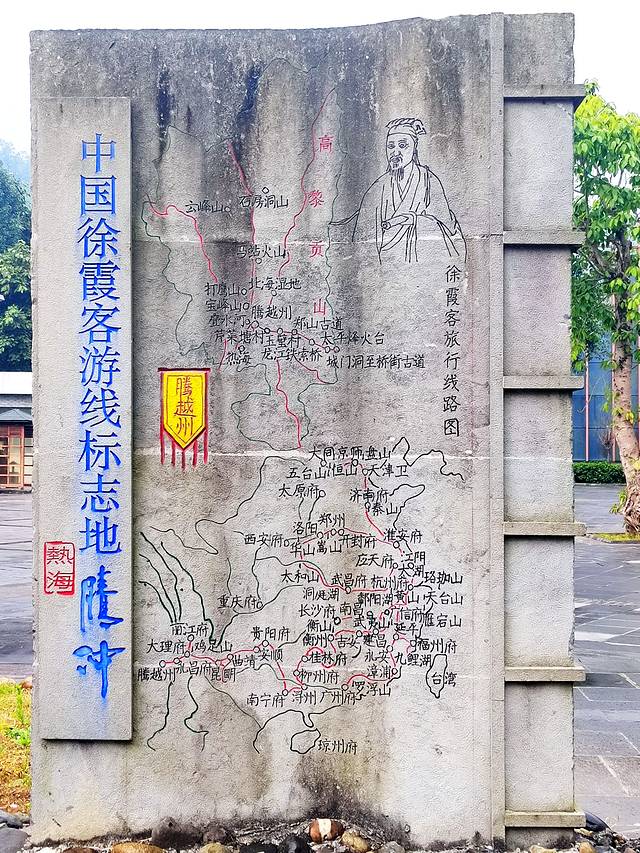 中国徐霞客游线标志地
腾冲
熱海
徐霞客旅行线路图
高黎贡山
云峰山
石房洞山
马站火山
北海湿地
打鹰山
宝峰山
腾越州
叠水河
郑山古道
芹菜塘村
玉璧村
太平烽火台
热海
龙江铁索桥
城门洞至桥街古道
腾越州
大同
京师
盘山
五台山
恒山
天津卫
太原府
济南府
泰山
郑州
洛阳
西安府
华山
嵩山
开封府
淮安府
应天府
江阴
太湖
太和山
武昌府
杭州府
珞珈山
洞庭湖
鄱阳湖
黄山
天台山
重庆府
长沙府
南昌
信府
雁宕山
衡山
武夷山
延平
丽江府
衡州
古安
建昌
福州府
大理府
鸡足山
贵阳府
桂林府
永安
九鲤湖
腾越州
永昌府
昆明
曲靖
安顺
柳州府
漳浦
台湾
南宁府
浔州
广州府
罗浮山
琼州府